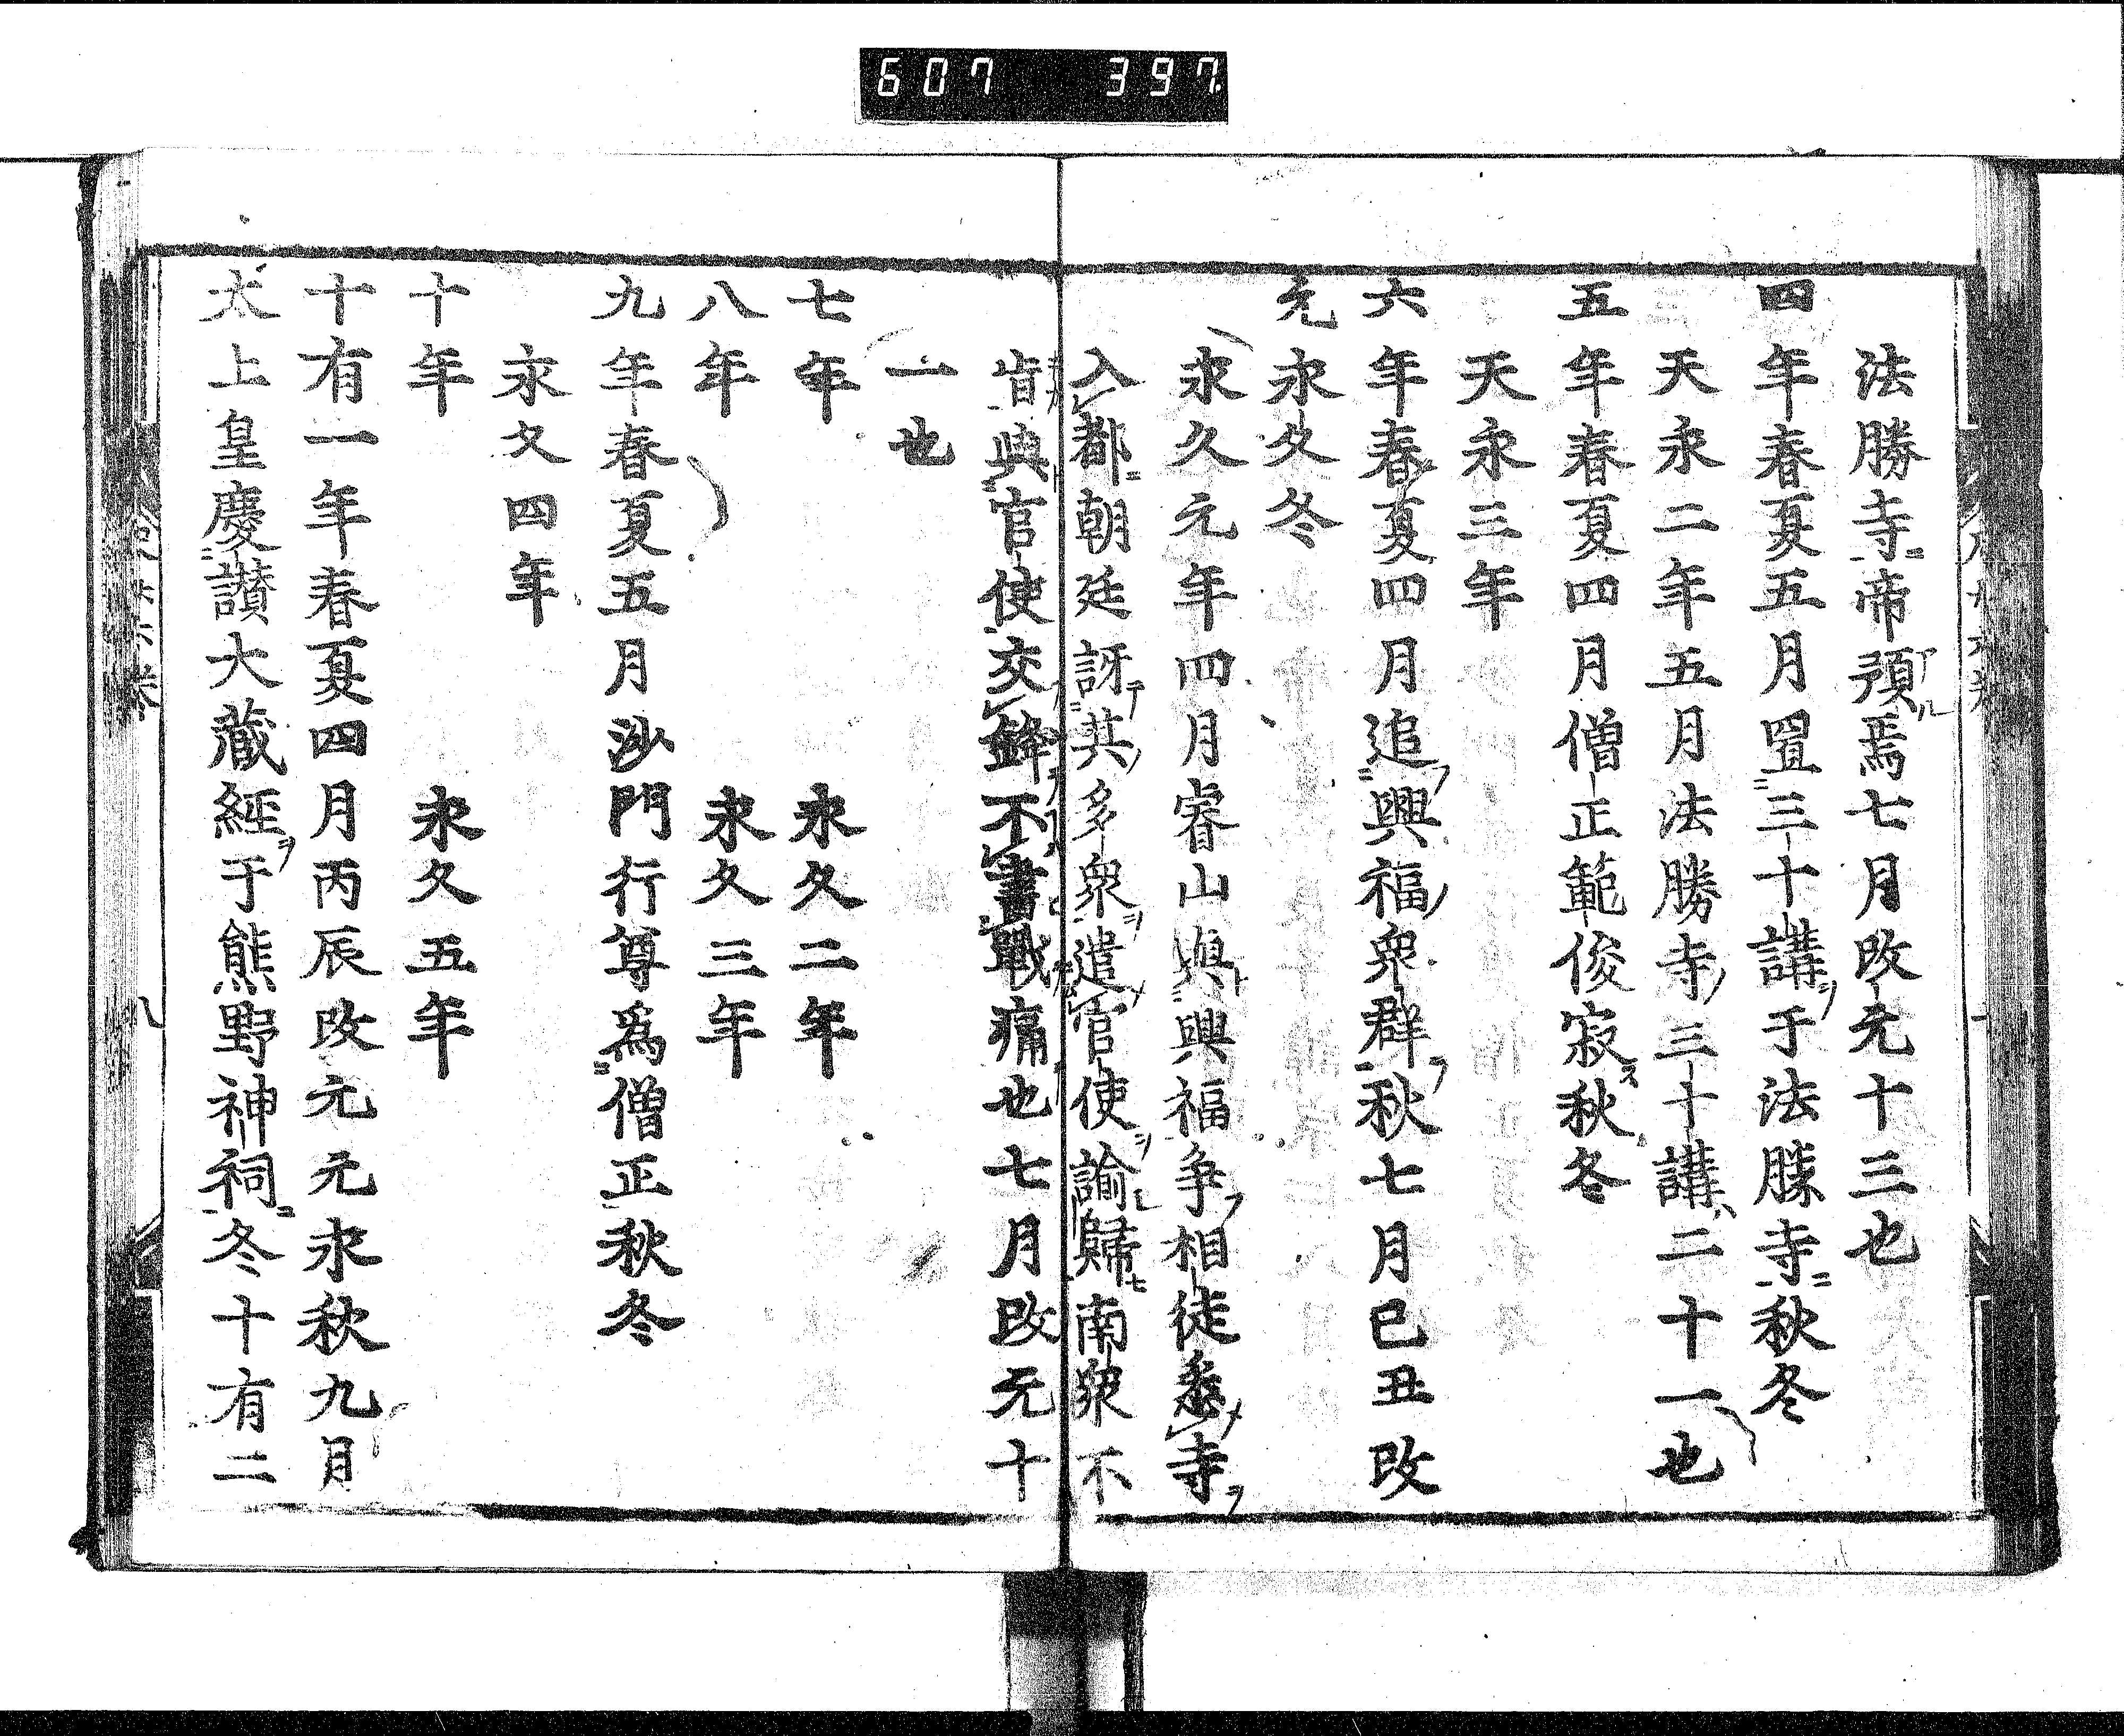 607 397
法勝寺帝預焉七月改元十三也
四年春夏五月置三十講于法勝寺秋冬
天永二年五月法勝寺三十講二十一也
五年春夏四月僧正範俊寂秋冬
天永三年
六年春夏四月追興福衆群秋七月己丑改
元永久冬
永久元年四月睿山與興福争相徒悉寺
入都朝廷訝其多衆遣官使諭歸南衆不
肯與官使交鋒不書戰痛也七月改元十
一也
七年 永久二年
八年 永久三年
九年春夏五月沙門行尊爲僧正秋冬
永久四年
十年 永久五年
十有一年春夏四月丙辰改元元永秋九月
太上皇慶讃大藏經于熊野神祠冬十有二
八